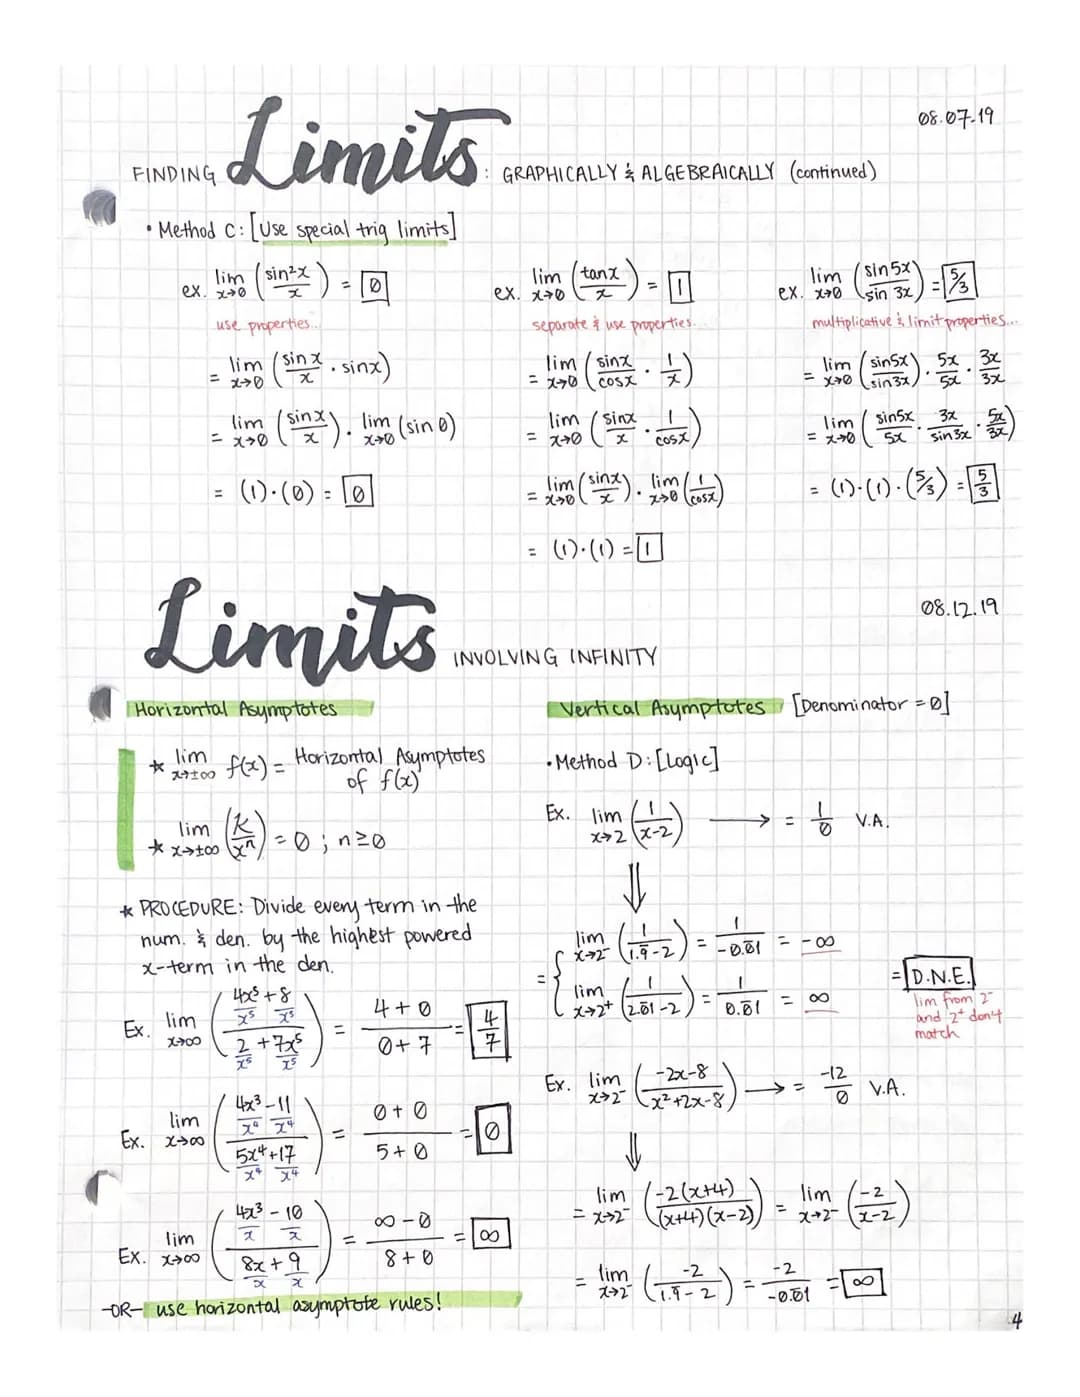 08.07.19
FINDING Limits: GRAPHICALLY & ALGEBRAICALLY (continued)
• Method C: [Use special trig limits]
ex. lim x→0 (sin²x / x) = 0
use properties...
= lim x→0 (sin x / x · sinx)
= lim x→0 (sinx / x) · lim x→0 (sin 0)
= (1)·(0) = 0
ex. lim x→0 (tanx / x) = 1
separate & use properties...
= lim x→0 (sinx / cosx · 1 / x)
= lim x→0 (sinx / x · 1 / cosx)
= lim x→0 (sinx / x) · lim x→0 (1 / cosx)
= (1)·(1) = 1
ex. lim x→0 (sin5x / sin 3x) = 5/3
multiplicative & limit properties...
= lim x→0 (sin5x / sin3x) · 5x / 5x · 3x / 3x
= lim x→0 (sin5x / 5x · 3x / sin3x · 5x / 3x)
= (1)·(1)·(5/3) = 5/3
08.12.19
Limits INVOLVING INFINITY
Horizontal Asymptotes
★ lim x→±∞ f(x) = Horizontal Asymptotes
of f(x)
★ lim x→±∞ (K / xⁿ) = 0 ; n≥0
★ PROCEDURE: Divide every term in the
num. & den. by the highest powered
x-term in the den.
Ex. lim x→∞ (4x⁵/x⁵ + 8/x⁵ / 2/x⁵ + 7x⁵/x⁵) = 4+0 / 0+7 = 4/7
Ex. lim x→∞ (4x³/x⁴ - 11/x⁴ / 5x⁴/x⁴ + 17/x⁴) = 0+0 / 5+0 = 0
Ex. lim x→∞ (4x³/x - 10/x / 8x/x + 9/x) = ∞-0 / 8+0 = ∞
-OR- use horizontal asymptote rules!
Vertical Asymptotes [Denominator = 0]
• Method D: [Logic]
Ex. lim x→2 (1 / x-2) → = 1/0 V.A.
⇓
= { lim x→2⁻ (1 / 1.9̄-2) = 1 / -0.0̄1 = -∞
lim x→2⁺ (1 / 2.0̄1-2) = 1 / 0.0̄1 = ∞
= D.N.E.
lim from 2⁻
and 2⁺ don't
match
Ex. lim x→2⁻ (-2x-8 / x²+2x-8) → = -12/0 V.A.
⇓
= lim x→2⁻ (-2(x+4) / (x+4)(x-2)) = lim x→2⁻ (-2 / x-2)
= lim x→2⁻ (-2 / 1.9̄-2) = -2 / -0.0̄1 = ∞
4